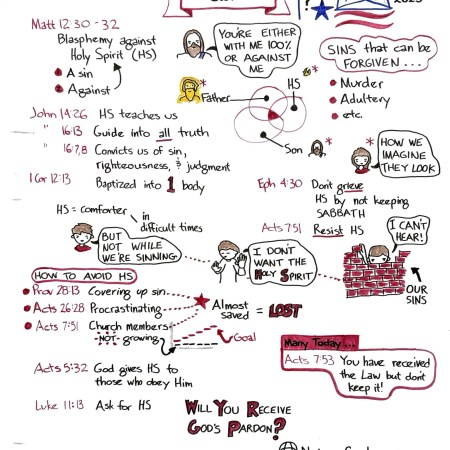 2023
Matt 12:30 - 32
Blasphemy against
Holy Spirit (HS)
1 A sin
2 Against
YOU'RE EITHER
WITH ME 100%
OR AGAINST
ME
SINS that can be
FORGIVEN...
• Murder
• Adultery
• etc.
* Father
HS
Son *
John 14:26 HS teaches us
" 16:13 Guide into all truth
" 16:7,8 Convicts us of sin,
righteousness, & judgment
1 Cor 12:13 Baptized into 1 body
* HOW WE
IMAGINE
THEY LOOK
Eph 4:30 Don't grieve
HS by not keeping
SABBATH
Acts 7:51 Resist HS
HS = comforter in
difficult times
BUT
NOT WHILE
WE'RE SINNING
I DON'T
WANT THE
HOLY SPIRIT
I CAN'T
HEAR!
OUR
SINS
HOW TO AVOID HS
• Prov 28:13 Covering up sin
• Acts 26:28 Procrastinating
• Acts 7:51 Church members
NOT growing
Almost
saved = LOST
Goal
Many Today...
Acts 7:53 You have received
the Law but don't
keep it!
Acts 5:32 God gives HS to
those who obey Him
Luke 11:13 Ask for HS
WILL YOU RECEIVE
GOD'S PARDON?